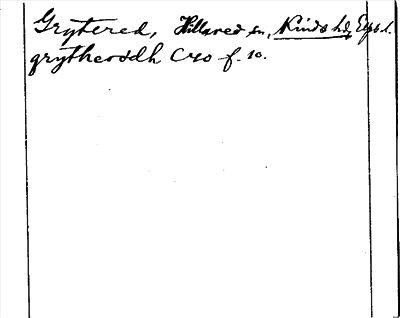 Grytered, Hillared sn, Kinds hd, Elfs l.
grytherødh C40 f. 10.